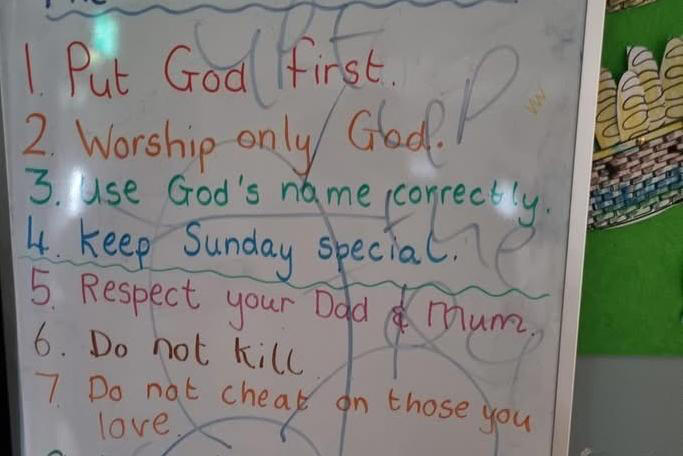 1. Put God first.
2. Worship only God.
3. Use God's name correctly.
4. Keep Sunday special.
5. Respect your Dad & Mum.
6. Do not kill
7. Do not cheat on those you
love.